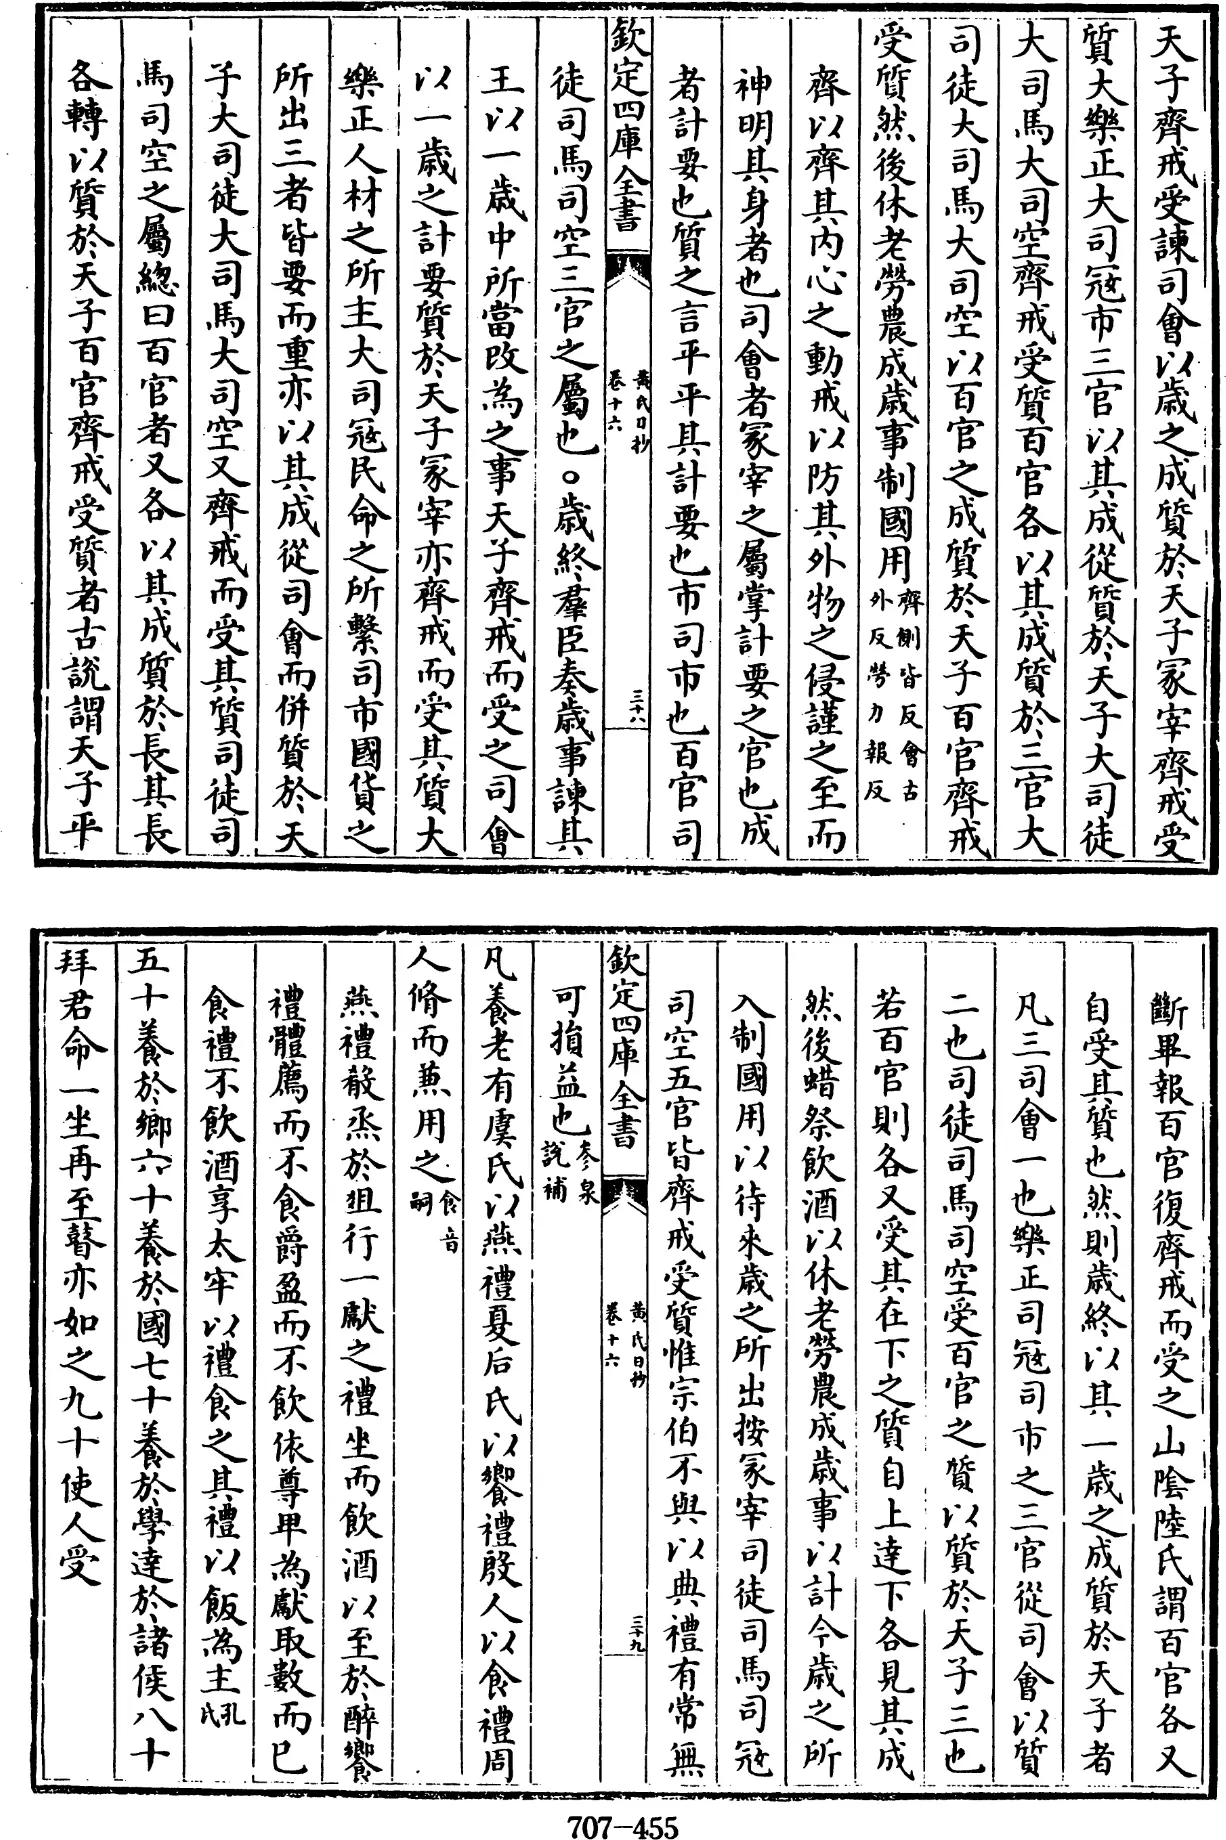 天子齊戒受諫司會以歳之成質於天子冢宰齊戒受
質大樂正大司冦市三官以其成從質於天子大司徒
大司馬大司空齊戒受質百官各以其成質於三官大
司徒大司馬大司空以百官之成質於天子百官齊戒
受質然後休老勞農成歳事制國用齊側皆反會古
外反勞力報反
齊以齊其内心之動戒以防其外物之侵謹之至而
神明其身者也司會者冢宰之屬掌計要之官也成
者計要也質之言平平其計要也市司市也百官司
欽定四庫全書
黄氏日抄
卷十六
三十八
徒司馬司空三官之屬也○歳終羣臣奏歳事諫其
王以一歳中所當改為之事天子齊戒而受之司會
以一歳之計要質於天子冢宰亦齊戒而受其質大
樂正人材之所主大司冦民命之所繫司市國貨之
所出三者皆要而重亦以其成從司會而併質於天
子大司徒大司馬大司空又齊戒而受其質司徒司
馬司空之屬總曰百官者又各以其成質於長其長
各轉以質於天子百官齊戒受質者古説謂天子平
斷畢報百官復齊戒而受之山隂陸氏謂百官各又
自受其質也然則歳終以其一歳之成質於天子者
凡三司會一也樂正司冦司市之三官從司會以質
二也司徒司馬司空受百官之質以質於天子三也
若百官則各又受其在下之質自上達下各見其成
然後蜡祭飲酒以休老勞農成歳事以計今歳之所
入制國用以待來歳之所出按冢宰司徒司馬司冦
司空五官皆齊戒受質惟宗伯不與以典禮有常無
欽定四庫全書
黄氏日抄
卷十六
三十九
可損益也参泉
説補
凡養老有虞氏以燕禮夏后氏以饗禮殷人以食禮周
人脩而兼用之食音
嗣
燕禮殽烝於俎行一獻之禮坐而飲酒以至於醉饗
禮體薦而不食爵盈而不飲依尊卑為獻取數而已
食禮不飲酒享太牢以禮食之其禮以飯為主孔
氏
五十養於鄉六十養於國七十養於學達於諸侯八十
拜君命一坐再至瞽亦如之九十使人受
707—455